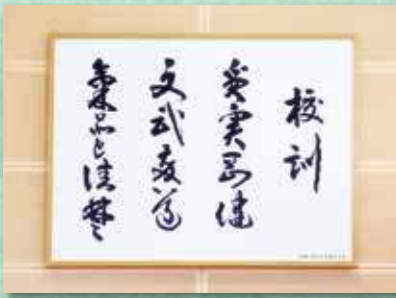 校訓
質実剛健
文武両道
氣品と清楚